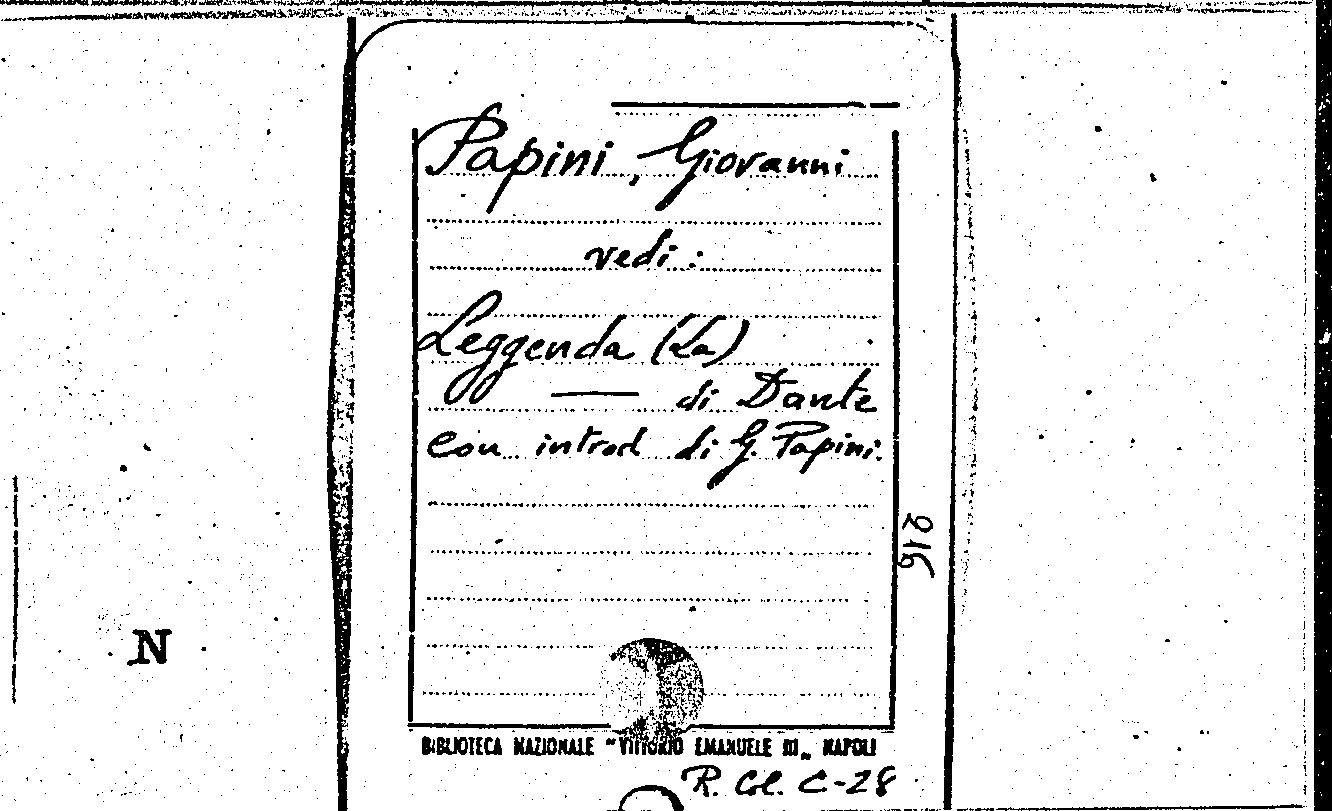 Papini, Giovanni
vedi:
Leggenda (La)
— di Dante
con introd di G. Papini.
216
N
BIBLIOTECA NAZIONALE "VITTORIO EMANUELE III„ NAPOLI
R. Col. C-28